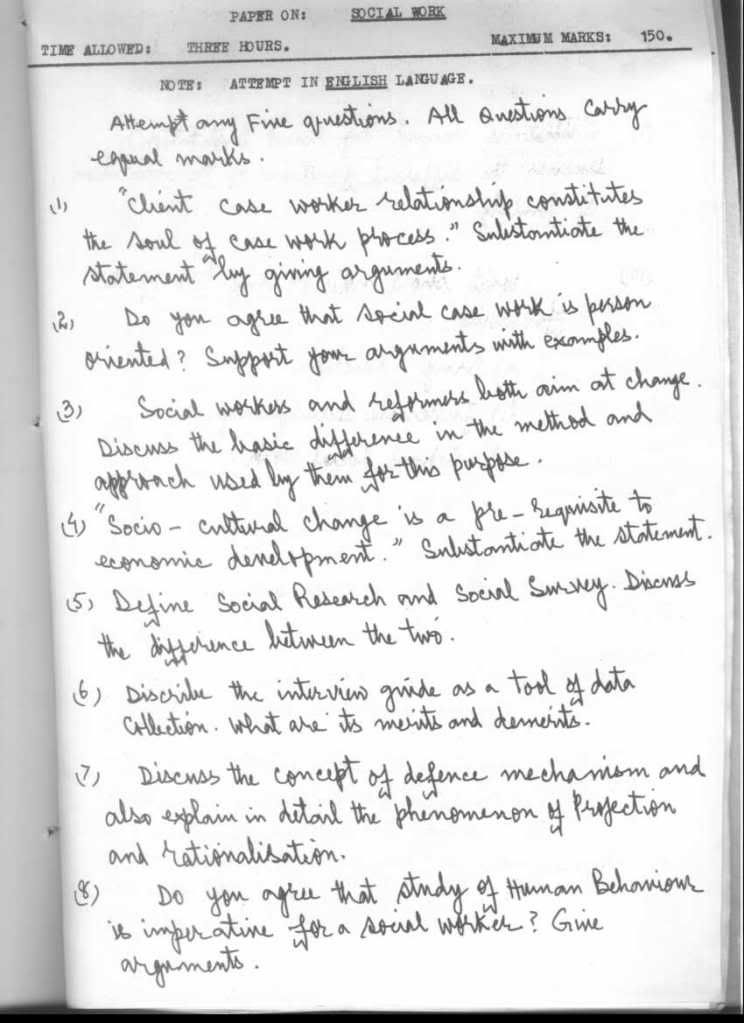 PAPER ON: SOCIAL WORK
TIME ALLOWED: THREE HOURS. MAXIMUM MARKS: 150.
NOTE: ATTEMPT IN ENGLISH LANGUAGE.
Attempt any Five questions. All Questions Carry
equal marks.
(1) "Client case worker relationship constitutes
the soul of case work process." Substantiate the
statement by giving arguments.
(2) Do you agree that social case work is person
oriented? Support your arguments with examples.
(3) Social workers and reformers both aim at change.
Discuss the basic difference in the method and
approach used by them for this purpose.
(4) "Socio-cultural change is a pre-requisite to
economic development." Substantiate the statement.
(5) Define Social Research and Social Survey. Discuss
the difference between the two.
(6) Discribe the interview guide as a tool of data
Collection. What are its merits and demerits.
(7) Discuss the concept of defence mechanism and
also explain in detail the phenomenon of Projection
and rationalisation.
(8) Do you agree that study of Human Behaviour
is imperative for a social worker? Give
arguments.